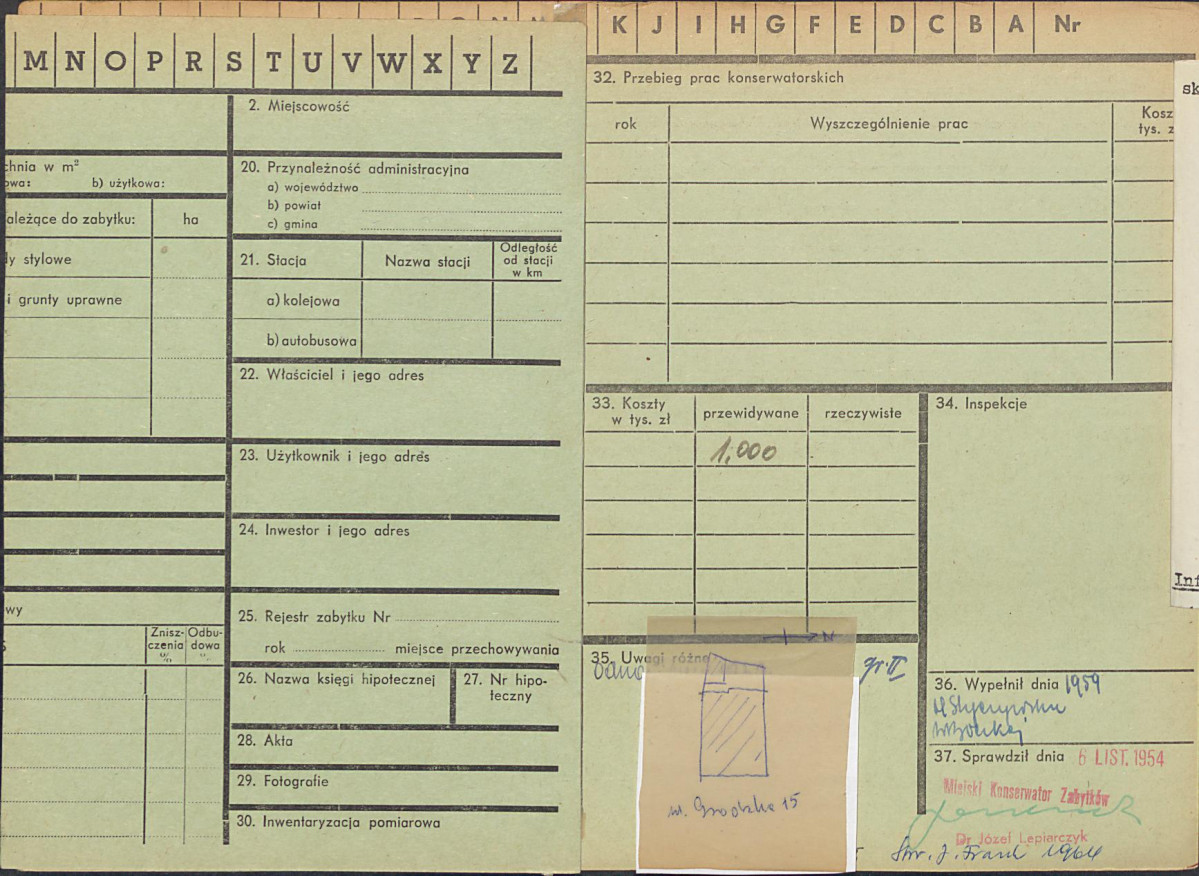 M N O P R S T U V W X Y Z
K J I H G F E D C B A Nr
2. Miejscowość
chnia w m²
owa: b) użytkowa:
ależące do zabytku: ha
dy stylowe
i grunty uprawne
wy
Znisz-
czenia
%
Odbu-
dowa
20. Przynależność administracyjna
a) województwo
b) powiat
c) gmina
21. Stacja
Nazwa stacji
Odległość
od stacji
w km
a) kolejowa
b) autobusowa
22. Właściciel i jego adres
23. Użytkownik i jego adres
24. Inwestor i jego adres
25. Rejestr zabytku Nr
rok miejsce przechowywania
26. Nazwa księgi hipotecznej
27. Nr hipo-
teczny
28. Akta
29. Fotografie
30. Inwentaryzacja pomiarowa
32. Przebieg prac konserwatorskich
rok
Wyszczególnienie prac
Kosz
tys. z
33. Koszty
w tys. zł
przewidywane
rzeczywiste
1,000
34. Inspekcje
35. Uwagi różne
N
gr. II
ul. Grodzka 15
36. Wypełnił dnia 1959
37. Sprawdził dnia 6 LIST. 1954
Miejski Konserwator Zabytków
Dr Józef Lepiarczyk
1964
sk
Inf